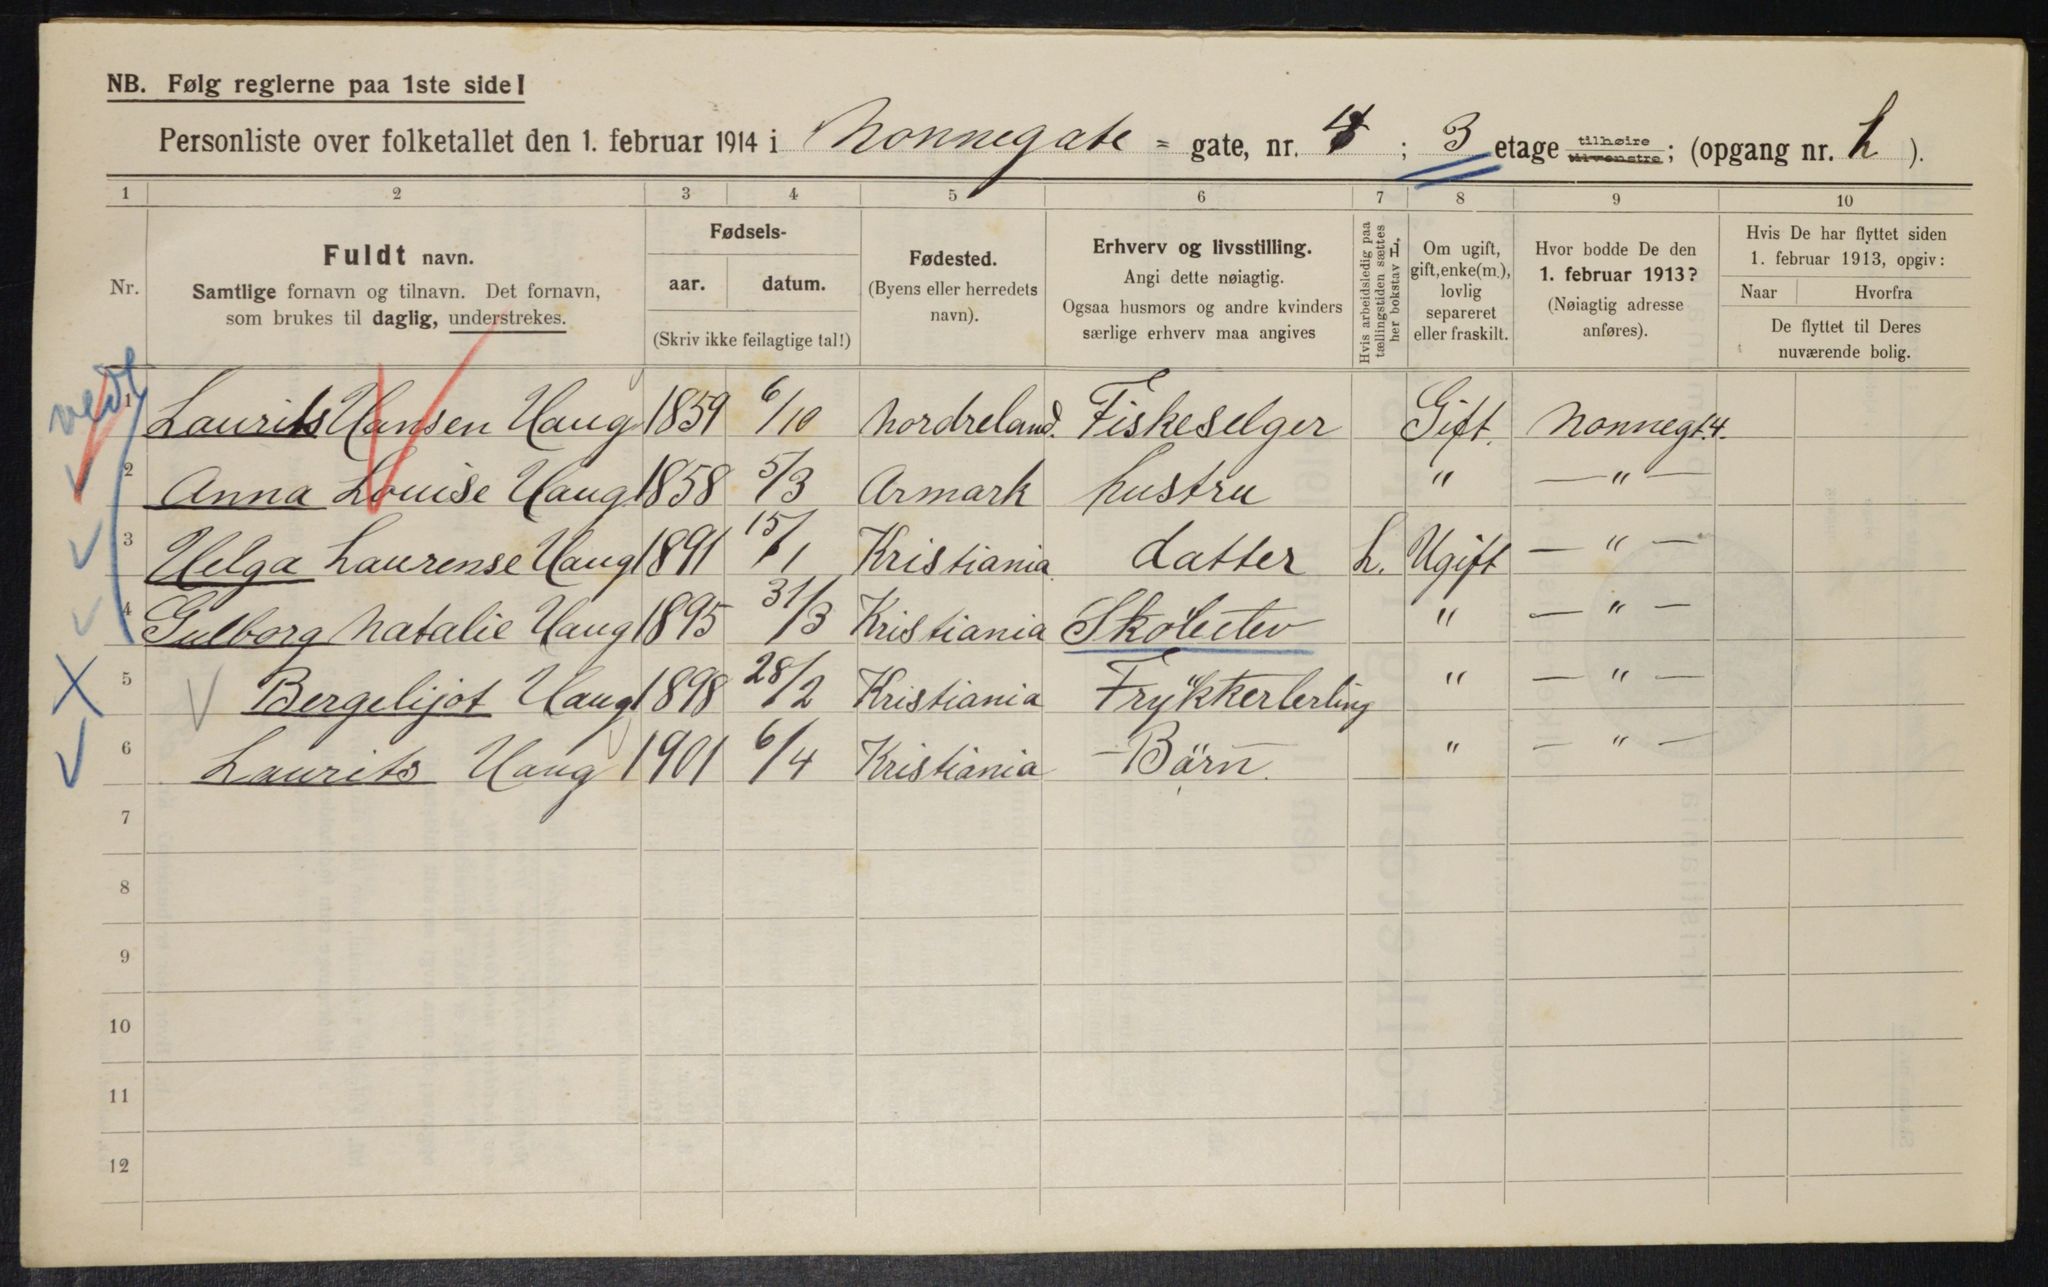 NB. Følg reglerne paa 1ste side!
Personliste over folketallet den 1. februar 1914 i Nonnegate = gate, nr. 4 ; 3 etage tilhøire tilvenstre ; (opgang nr. h ).
1 2 3 4 5 6 7 8 9 10
Nr.
Fuldt navn.
Samtlige fornavn og tilnavn. Det fornavn,
som brukes til daglig, understrekes.
Fødsels-
aar. datum.
(Skriv ikke feilagtige tal!)
Fødested.
(Byens eller herredets
navn).
Erhverv og livsstilling.
Angi dette nøiagtig.
Ogsaa husmors og andre kvinders
særlige erhverv maa angives
Hvis arbeidsledig paa
tællingstiden sættes
her bokstav L.
Om ugift,
gift, enke(m.),
lovlig
separeret
eller fraskilt.
Hvor bodde De den
1. februar 1913?
(Nøiagtig adresse
anføres).
Hvis De har flyttet siden
1. februar 1913, opgiv:
Naar Hvorfra
De flyttet til Deres
nuværende bolig.
1 Laurits Hansen Haug 1859 6/10 Nordreland. Fiskeselger Gift. Nonnegt. 4.
2 Anna Louise Haug 1858 5/3 Armark hustru " — " —
3 Helga Laurense Haug 1891 15/1 Kristiania. datter L. Ugift — " —
4 Gulborg Natalie Haug 1895 31/3 Kristiania Skolelev " — " —
5 Bergelijot Haug 1898 28/2 Kristiania Frykkerlerling " — " —
6 Laurits Haug 1901 6/4 Kristiania — Börn. " — " —
7
8
9
10
11
12